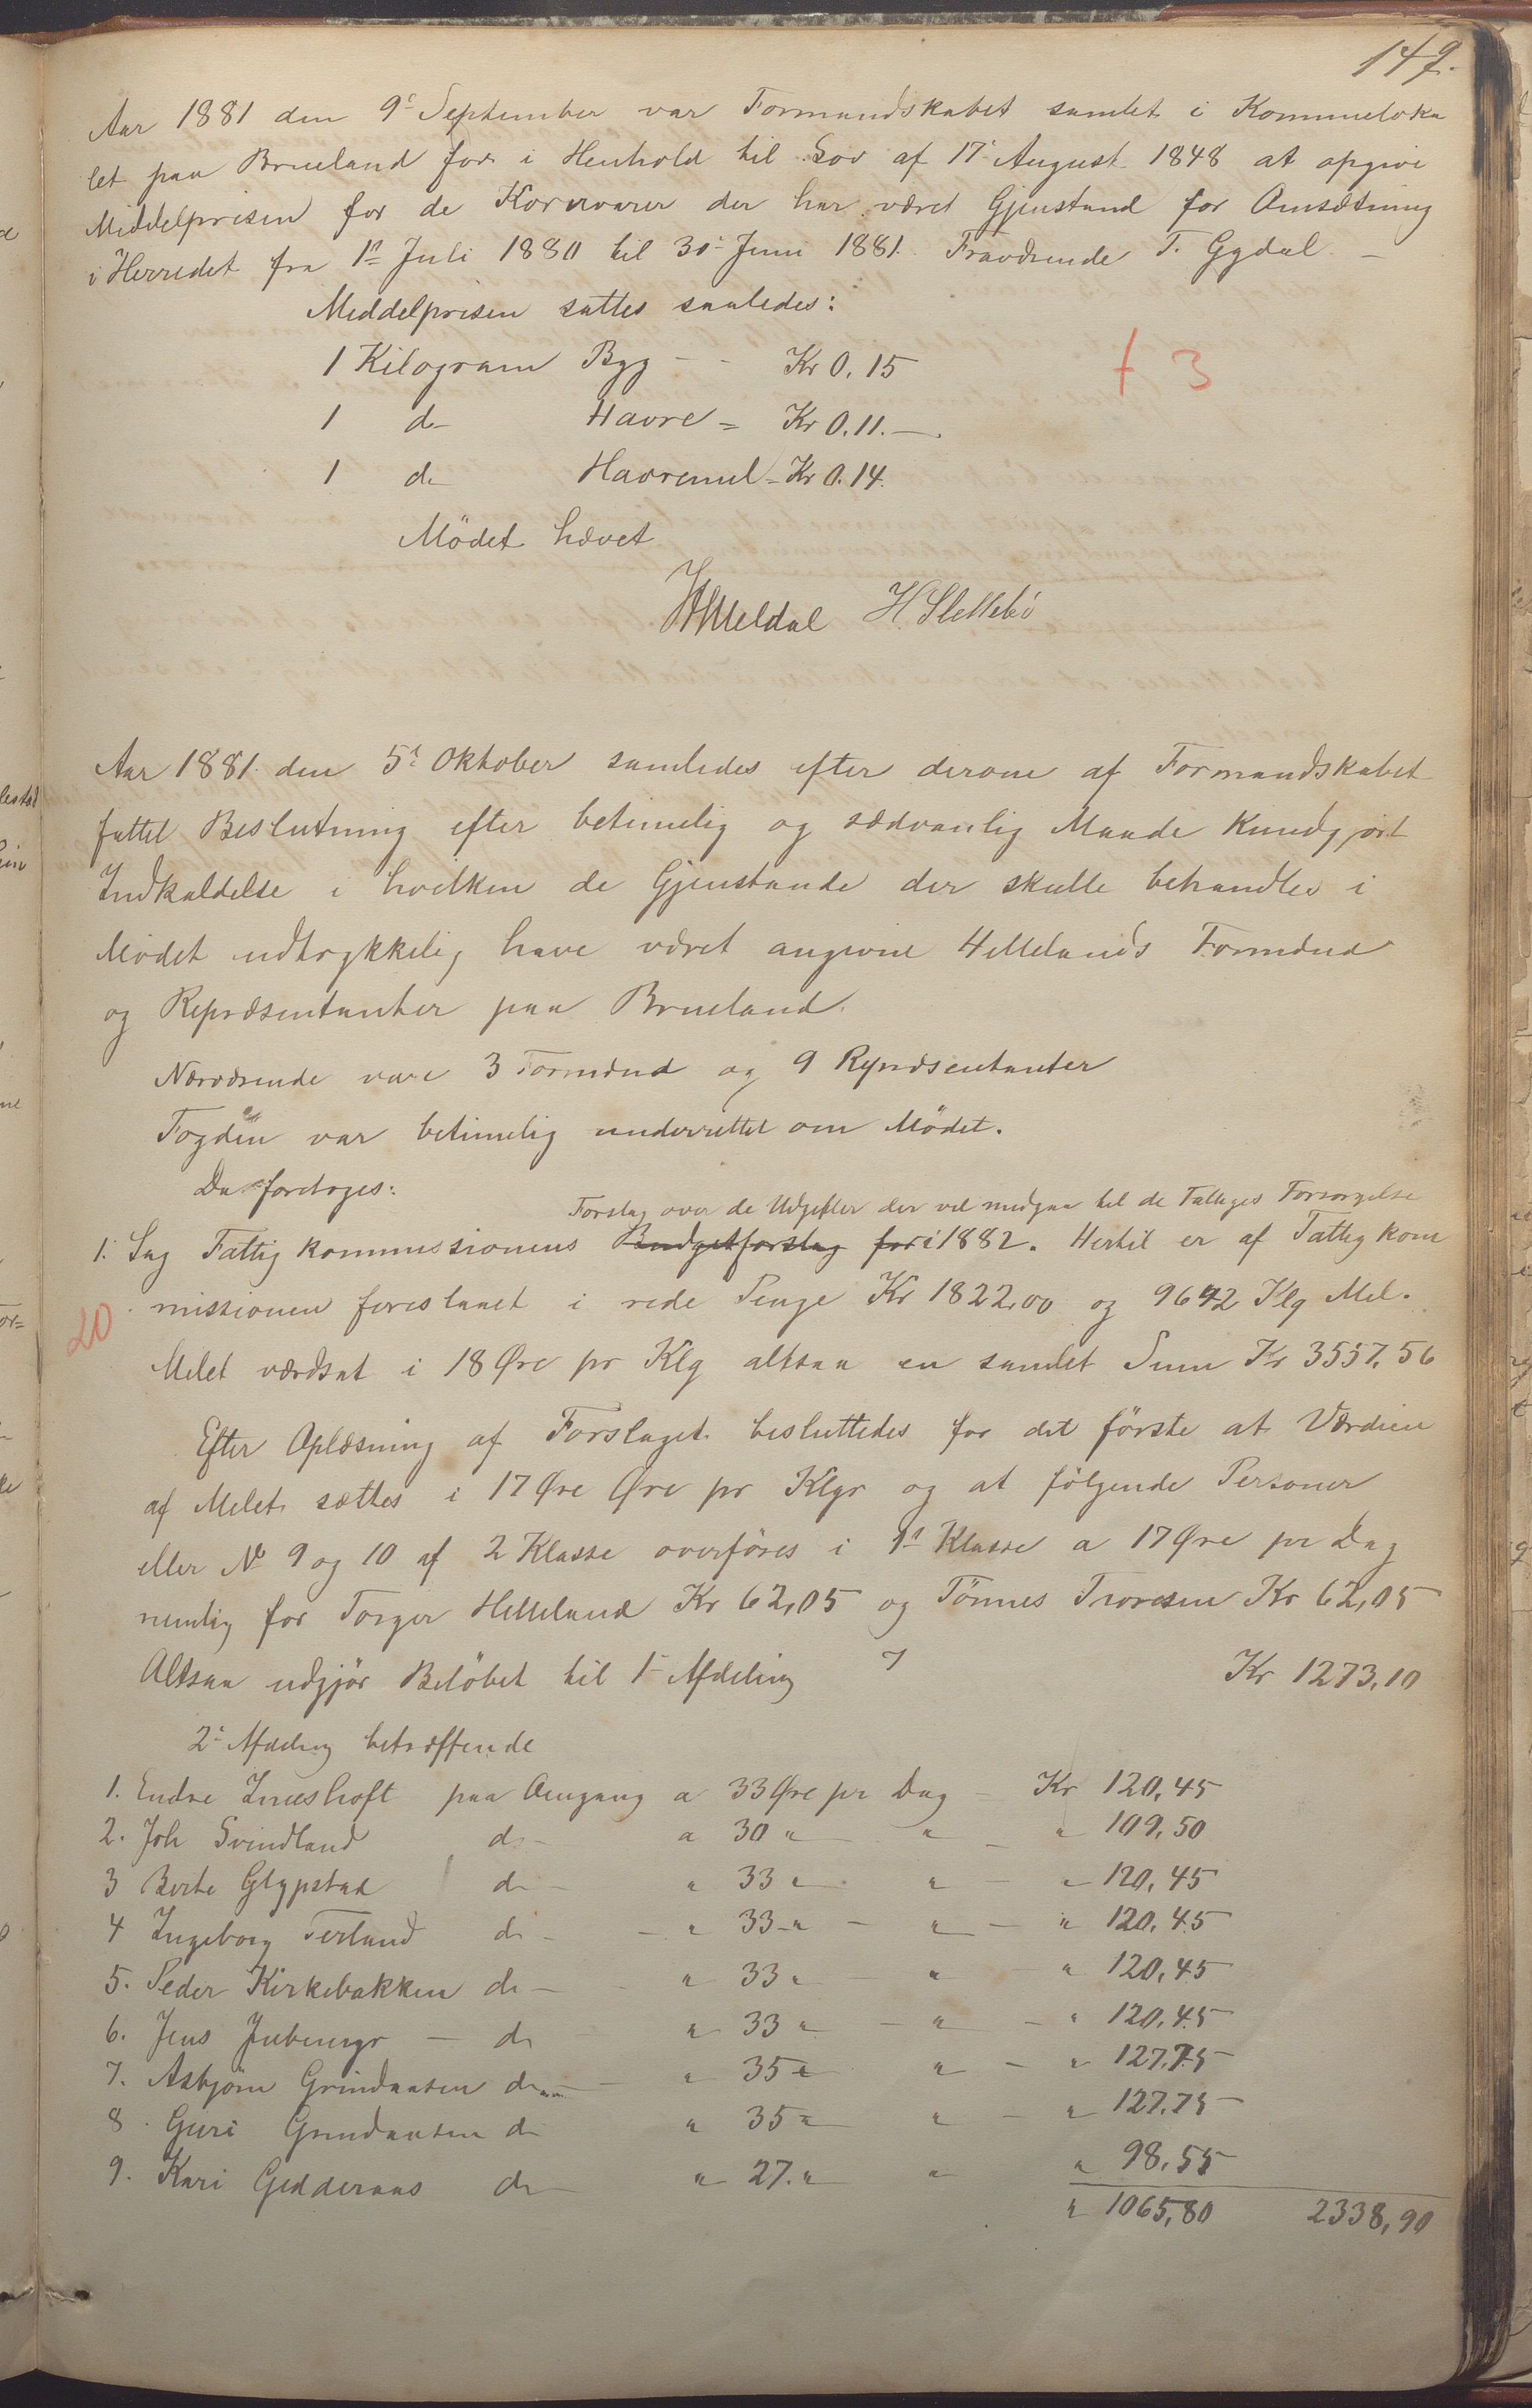 149.
Aar 1881 den 9de September var Formandskabet samlet i Kommuneloka
let paa Brueland for i Henhold til Lov af 17de August 1848 at opgive
Middelprisen for de Kornvarer der har været Gjenstand for Omsætning
i Herredet fra 1ste Juli 1880 til 30de Juni 1881. Fraværende T. Gydal. –
Middelprisen sattes saaledes:
1 Kilogram Byg - - Kr 0.15
1 do Havre = Kr 0.11.—
1 do Havremel = Kr 0.14.
Mödet hævet
Meldal H. Slettebö
† 3
Aar 1881 den 5te Oktober samledes efter derom af Formandskabet
fattet Beslutning efter betimelig og sædvanlig Maade Kundgjort
Indkaldelse i hvilken de Gjenstande der skulle behandles i
Mödet udtrykkelig have været angivne Hellelands Formænd
og Repræsentanter paa Brueland.
Nærværende vare 3 Formænd og 9 Repræsentanter
Fogden var betimelig underrettet om Mödet.
Da foretoges:
Forslag over de Udgifter der vil medgaa til de Fattiges Forsorgelse
1. Sag Fattigkommissionens Budgetforslag for i 1882. Hertil er af Fattigkom
20
missionen foreslaaet i rede Penge Kr 1822,00 og 9642 Klg Mel.
Melet værdsat i 18 Øre pr Klg altsaa en samlet Sum Kr 3557,56
Efter Oplæsning af Forslaget besluttedes for det förste at Værdien
af Melet sættes i 17 Øre Øre pr Klgr og at fölgende Personer
eller No 9 og 10 af 2 Klasse overföres i 1ste Klasse a 17 Øre pr Dag
nemlig for Torger Helleland Kr 62,05 og Tönnes Troresen Kr 62,05
Altsaa udgjör Belöbet til 1ste Afdeling Kr 1273,10
2den Afdeling betræffende
1. Endre paa Omgang a 33 Øre pr Dag – Kr 120,45
2. Joh Svindland do – a 30 " " – " 109,50
3 Berte Glypstad do – " 33 " " – " 120,45
4 Ingeborg Terland do – " 33 " – " – " 120,45
5. Peder Kirkebakken do – " 33 " " " 120,45
6. Jens – do " 33 " – " – " 120,45
7. Asbjörn Grindaasen do – " 35 " " – " 127,75
8. Guri Grindaasen do " 35 " " – " 127,75
9. Kari Gedderaas do " 27. " " " 98,55
" 1065,80 2338,90